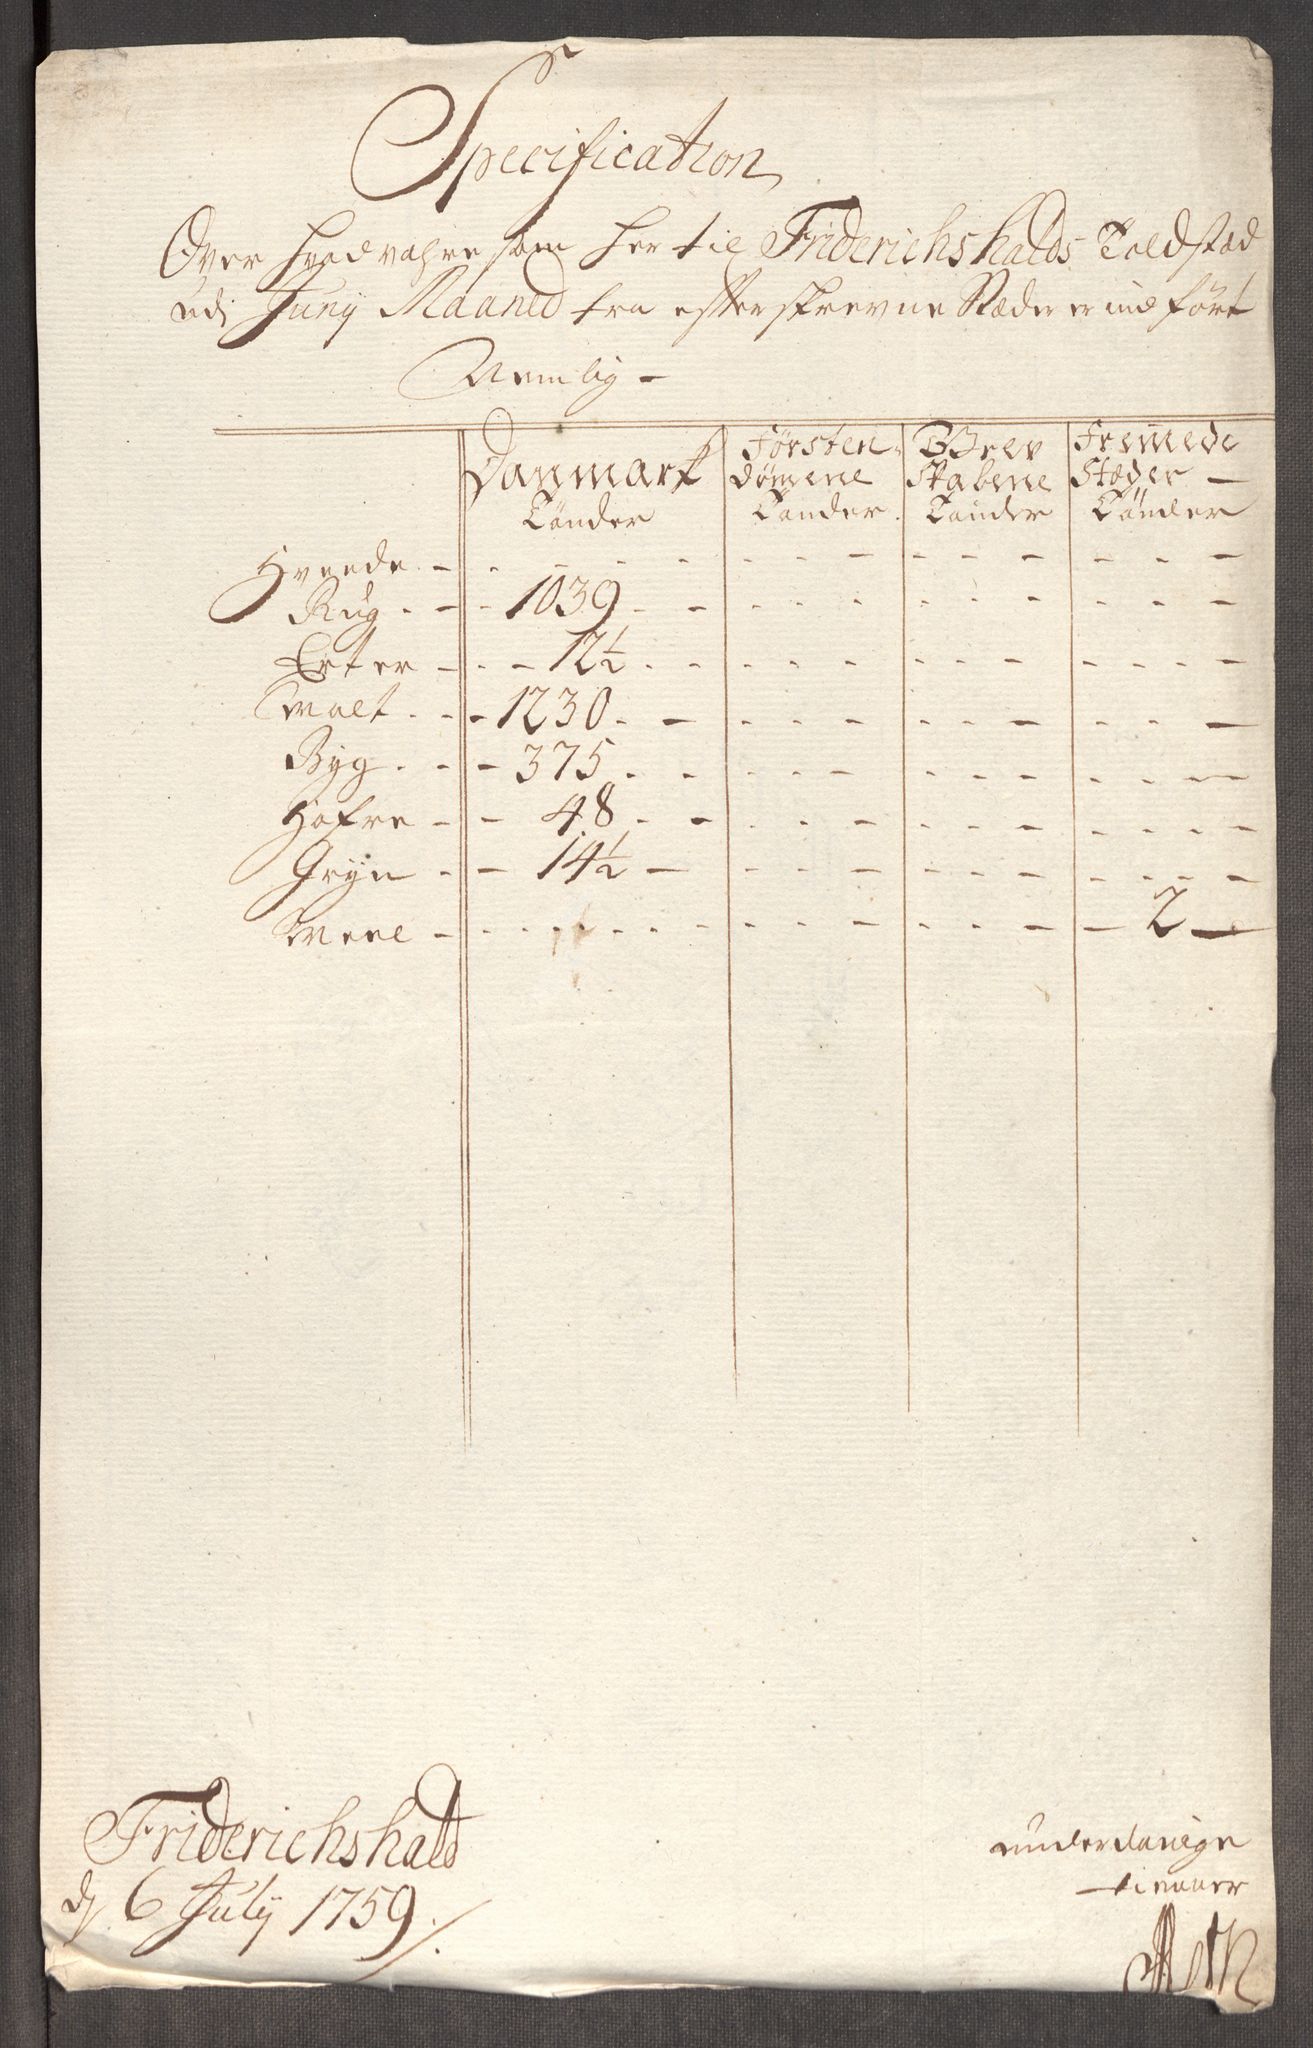 Specification
Over hvad vahre som her til Friderichshalds Toldstæd
udi Junij Maaned fra efterskrevne Stæder er ind ført
Nemlig -
Danmark Førsten- Grev Fremede
dømene Skabene Stæder -
Tønder Tønder Tønder Tønder
Hvede - - - - -
Rug - - 1039 - - - -
Erter - - 12½ - - - -
Malt - - 1230 - - - -
Byg - - 375 - - - -
Hafre - - 48 - - - -
Gryn - - 14½ - - - -
Meel - - - - - 2 -
Friderichshald
d. 6 July 1759
underdanige
tienner